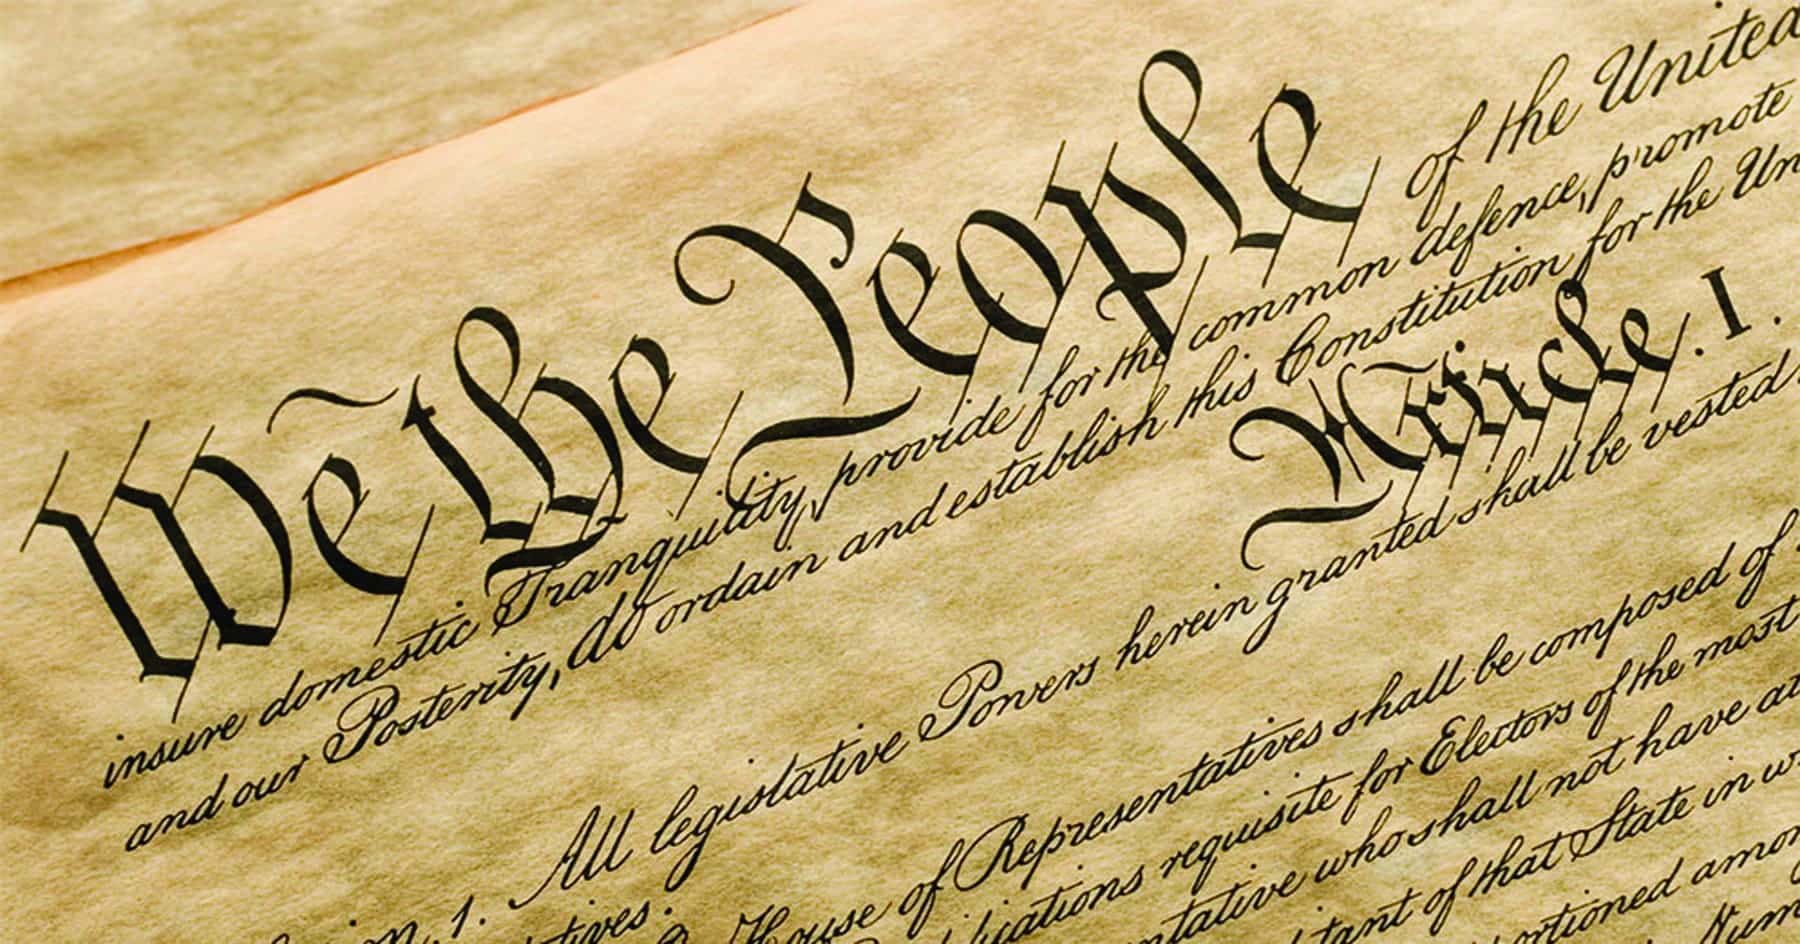 We the People of the United
insure domestic Tranquility, provide for the common defence, promote
and our Posterity, do ordain and establish this Constitution for the Un
Article. I.
1. All legislative Powers herein granted shall be vested
tives.
House of Representatives shall be composed of
lications requisite for Electors of the most
ntative who shall not have at
tant of that State in w
ortioned amon
Num